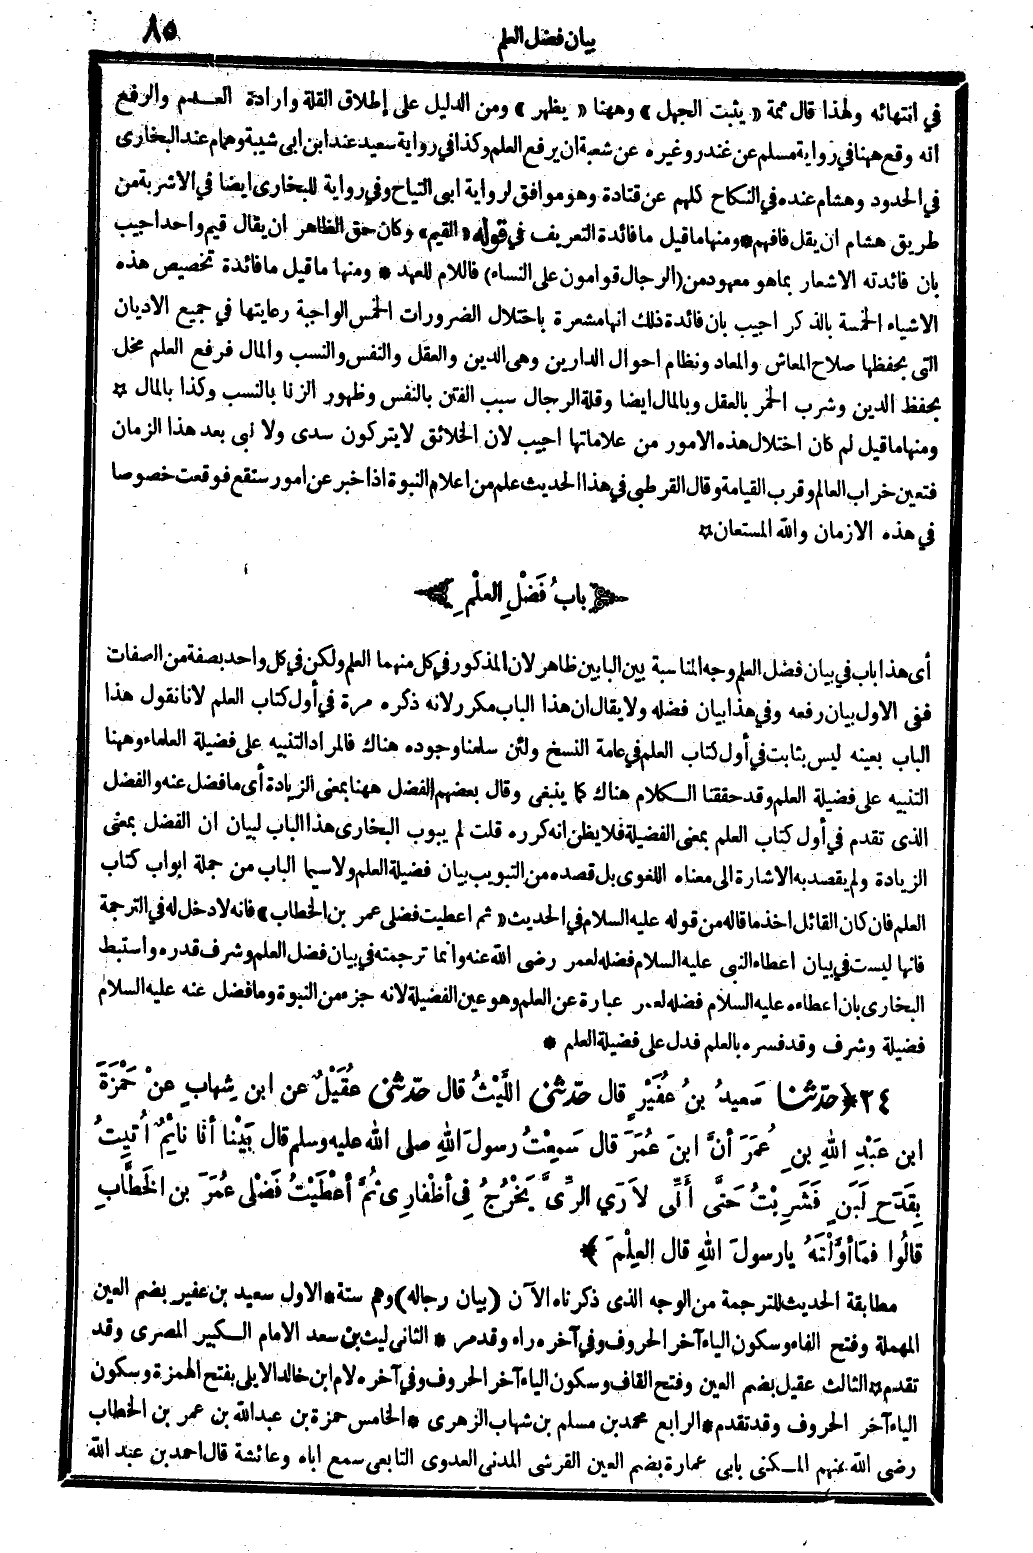 بيان فضل العلم
٨٥
في انتهائه ولهذا قال ثمة « يثبت الجهل » وههنا « يظهر » ومن الدليل على إطلاق القلة وارادة العدم والرفع
انه وقع ههنا في رواية مسلم عن غندر وغيره عن شعبة ان يرفع العلم وكذا في رواية سعيد عند ابن ابى شيبة وهمام عند البخارى
في الحدود وهشام عنده في النكاح كلهم عن قتادة وهو موافق لرواية ابى التياح وفي رواية للبخارى ايضا في الاشربة من
طريق هشام ان يقل فافهم * ومنها ما قيل ما فائدة التعريف في قوله « القيم » وكان حق الظاهر ان يقال قيم واحد اجيب
بان فائدته الاشعار بما هو معهود من (الرجال قوامون على النساء) فاللام للعهد * ومنها ما قيل ما فائدة تخصيص هذه
الاشياء الخمسة بالذكر اجيب بان فائدة ذلك انها مشعرة باختلال الضرورات الخمس الواجبة رعايتها في جميع الاديان
التى بحفظها صلاح المعاش والمعاد ونظام احوال الدارين وهى الدين والعقل والنفس والنسب والمال فرفع العلم مخل
بحفظ الدين وشرب الخمر بالعقل وبالمال ايضا وقلة الرجال سبب الفتن بالنفس وظهور الزنا بالنسب وكذا بالمال *
ومنها ما قيل لم كان اختلال هذه الامور من علاماتها اجيب لان الخلائق لا يتركون سدى ولا نبى بعد هذا الزمان
فتعين خراب العالم وقرب القيامة وقال القرطبى في هذا الحديث علم من اعلام النبوة اذ اخبر عن امور ستقع فوقعت خصوصا
في هذه الازمان والله المستعان *
بابُ فَضْلِ العلْمِ
أى هذا باب في بيان فضل العلم وجه المناسبة بين البابين ظاهر لان المذكور في كل منهما العلم ولكن في كل واحد بصفة من الصفات
ففى الاول بيان رفعه وفي هذا بيان فضله ولا يقال ان هذا الباب مكرر لانه ذكره مرة في أول كتاب العلم لانا نقول هذا
الباب بعينه ليس بثابت في أول كتاب العلم في عامة النسخ ولئن سلمنا وجوده هناك فالمراد التنبيه على فضيلة العلماء وههنا
التنبيه على فضيلة العلم وقد حققنا الكلام هناك كما ينبغى وقال بعضهم الفضل ههنا بمعنى الزيادة أى ما فضل عنه والفضل
الذى تقدم في أول كتاب العلم بمعنى الفضيلة فلا يظن انه كرره قلت لم يبوب البخارى هذا الباب لبيان ان الفضل بمعنى
الزيادة ولم يقصد به الاشارة الى معناه اللغوى بل قصده من التبويب بيان فضيلة العلم ولا سيما الباب من جملة ابواب كتاب
العلم فان كان القائل اخذ ما قاله من قوله عليه السلام في الحديث « ثم اعطيت فضلى عمر بن الخطاب » فانه لا دخل له في الترجمة
فانها ليست في بيان اعطاء النبى عليه السلام فضله لعمر رضى الله عنه وانما ترجمته في بيان فضل العلم وشرف قدره واستنبط
البخارى بان اعطاءه عليه السلام فضله لعمر عبارة عن العلم وهو عين الفضيلة لانه جزء من النبوة وما فضل عنه عليه السلام
فضيلة وشرف وقد فسره بالعلم فدل على فضيلة العلم *
٢٤ ﴿ حدّثنا سَعيدُ بنُ عُفَيْرٍ قال حدّثنى اللَّيْثُ قال حدّثنى عُقَيْلٌ عن ابنِ شِهابٍ عنْ حَمْزَةَ
ابن عَبْدِ اللهِ بنِ عُمَرَ أنَّ ابنَ عُمَرَ قال سَمِعْتُ رسولَ اللهِ صلى الله عليه وسلم قال بَيْنا أنا نائِمٌ اُتيتُ
بِقَدَحِ لَبَنٍ فَشَرِبْتُ حَتَّى أَنِّى لاَرَي الرِّىَّ يَخْرُجُ في أظْفارِى ثُمَّ أعْطَيْتُ فَضْلى عُمَرَ بن الخَطَّابِ
قالُوا فمَا أوَّلْتَهُ يارسولَ اللهِ قال العِلْمَ ﴾
مطابقة الحديث للترجمة من الوجه الذى ذكرناه الآن (بيان رجاله) وهم ستة * الاول سعيد بن عفير بضم العين
المهملة وفتح الفاء وسكون الياء آخر الحروف وفي آخره راء وقد مر * الثانى ليث بن سعد الامام الكبير المصرى وقد
تقدم * الثالث عقيل بضم العين وفتح القاف وسكون الياء آخر الحروف وفي آخره لام ابن خالد الايلى بفتح الهمزة وسكون
الياء آخر الحروف وقد تقدم * الرابع محمد بن مسلم بن شهاب الزهرى * الخامس حمزة بن عبدالله بن عمر بن الخطاب
رضى الله عنهم المكنى بابى عمارة بضم العين القرشى المدنى العدوى التابعى سمع اباه وعائشة قال احمد بن عبد الله